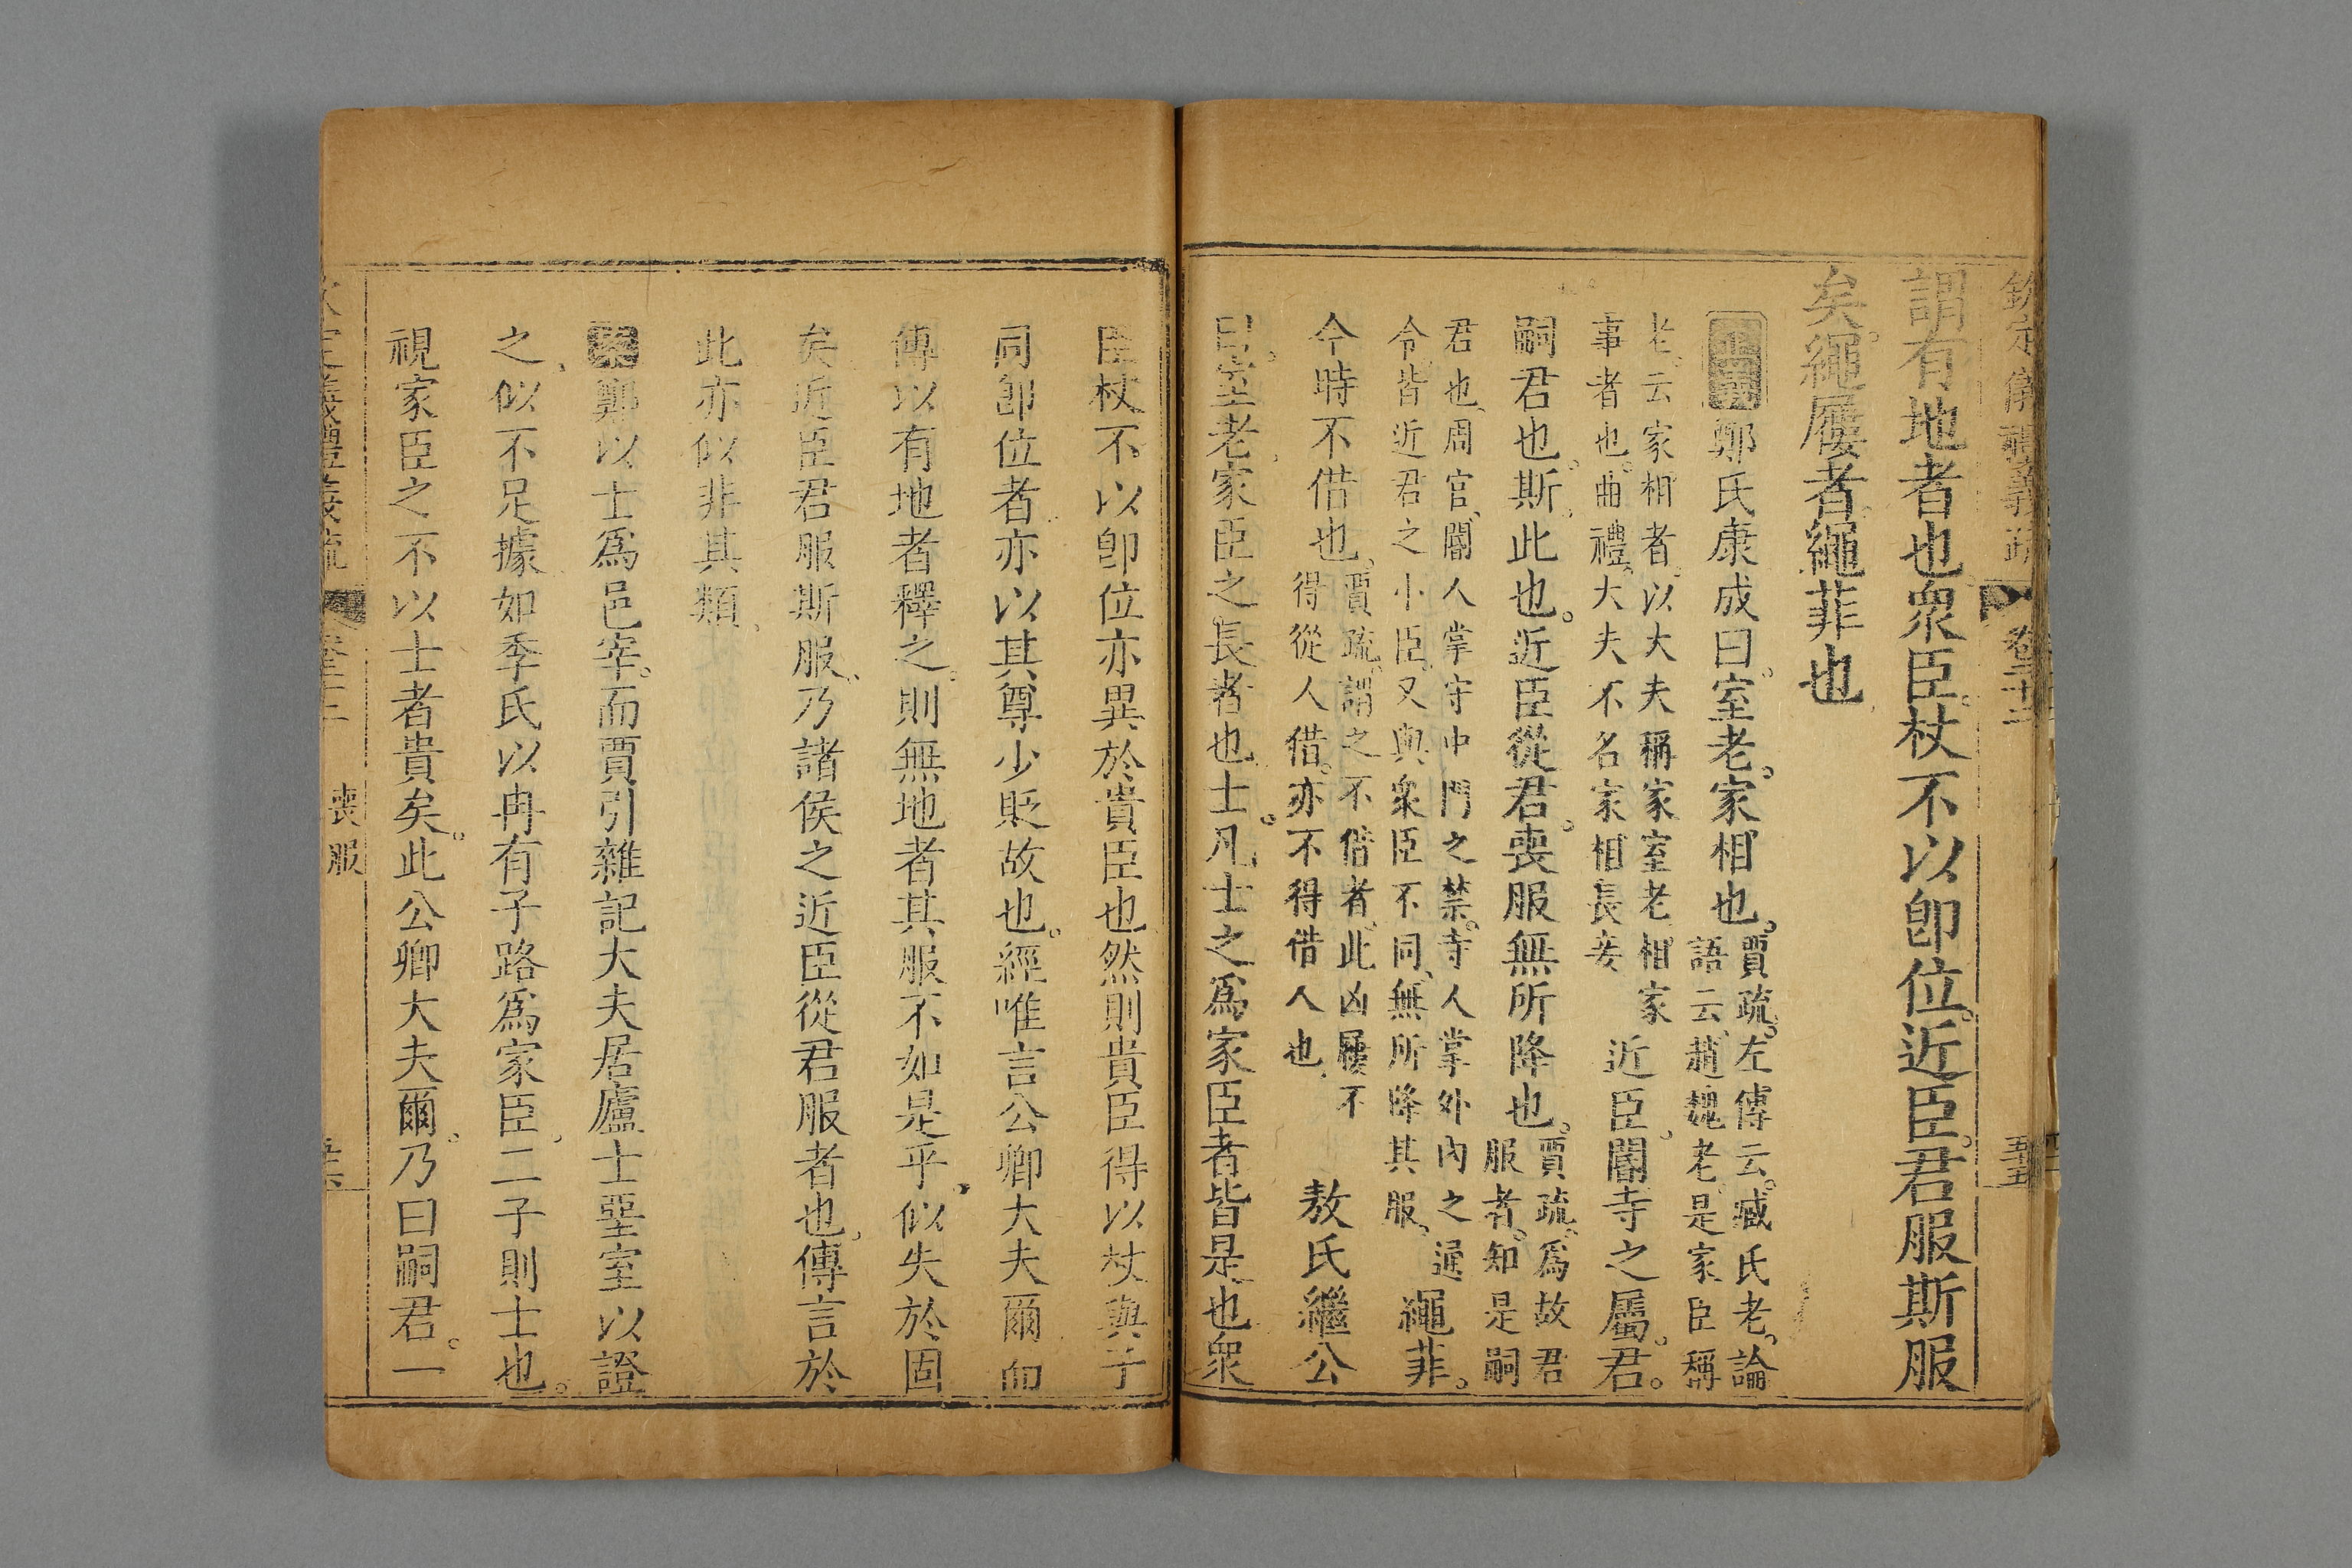 欽定儀禮義疏 卷二十二 五十五
謂有地者也衆臣杖不以卽位。近臣。君服斯服
矣。繩屨者。繩菲也
正義鄭氏康成曰。室老。家相也。賈疏。左傳云。臧氏老。論
語云。趙魏老。是家臣稱
老。云家相者。以大夫稱家室老相家
事者也。曲禮。大夫不名家相長妾
近臣。閽寺之屬。君。
嗣君也。斯。此也。近臣從君。喪服無所降也。賈疏。爲故君
服者。知是嗣
君也。周官。閽人掌守中門之禁。寺人掌外內之通
令。皆近君之小臣。又與衆臣不同。無所降其服。
繩菲。
今時不借也。賈疏。謂之不借者。此凶屨不
得從人借。亦不得借人也。
敖氏繼公
曰。室老。家臣之長者也。士。凡士之爲家臣者皆是也衆
臣杖不以卽位亦異於貴臣也然則貴臣得以杖與子
同卽位者亦以其尊少貶故也。經唯言公卿大夫爾而
傳以有地者釋之。則無地者其服不如是乎。似失於固
矣近臣君服斯服。乃諸侯之近臣從君服者也。傳言於
此亦似非其類。
案鄭以士爲邑宰。而賈引雜記大夫居廬士堊室以證
之。似不足據如季氏以冉有子路爲家臣。二子則士也。
視家臣之不以士者貴矣。此公卿大夫爾。乃曰嗣君。一
喪服